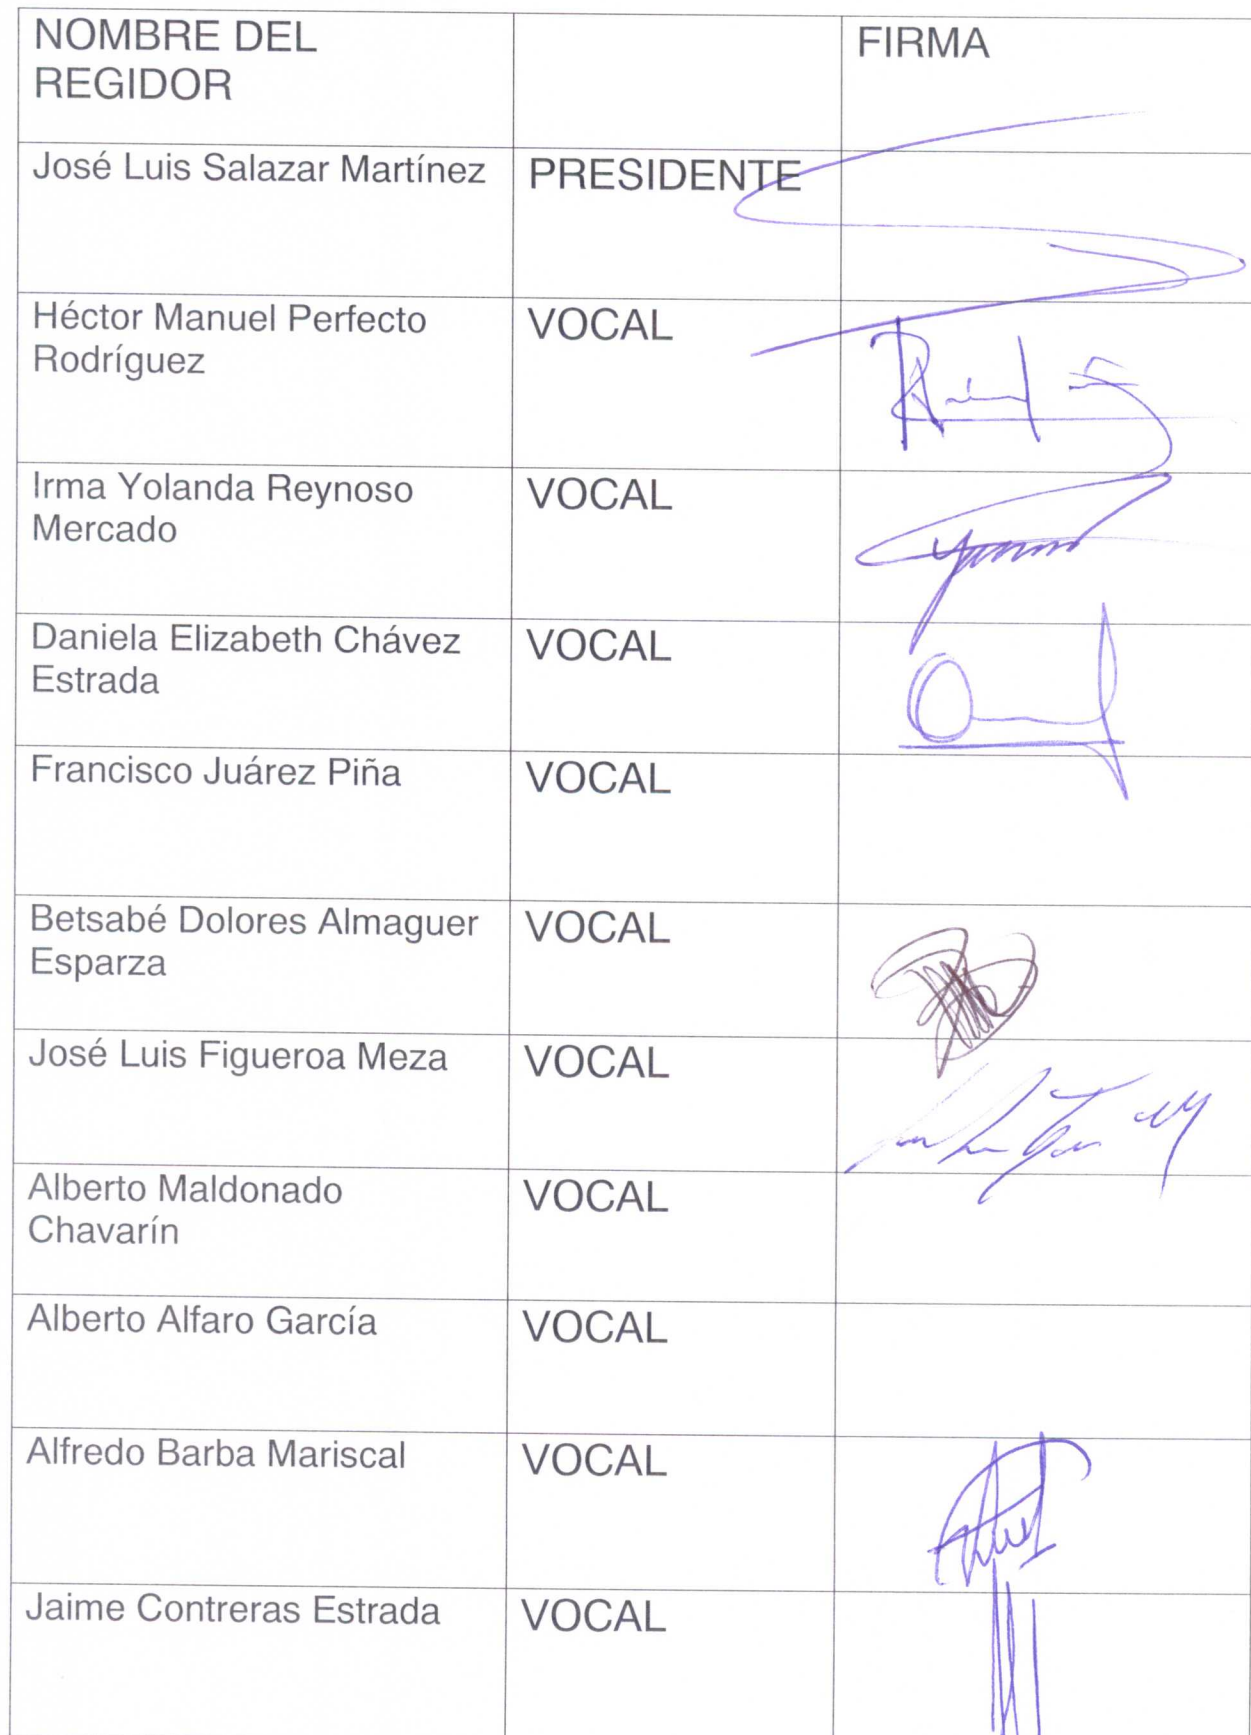 NOMBRE DEL
REGIDOR
FIRMA
José Luis Salazar Martínez
PRESIDENTE
Héctor Manuel Perfecto
Rodríguez
VOCAL
Irma Yolanda Reynoso
Mercado
VOCAL
Daniela Elizabeth Chávez
Estrada
VOCAL
Francisco Juárez Piña
VOCAL
Betsabé Dolores Almaguer
Esparza
VOCAL
José Luis Figueroa Meza
VOCAL
Alberto Maldonado
Chavarín
VOCAL
Alberto Alfaro García
VOCAL
Alfredo Barba Mariscal
VOCAL
Jaime Contreras Estrada
VOCAL